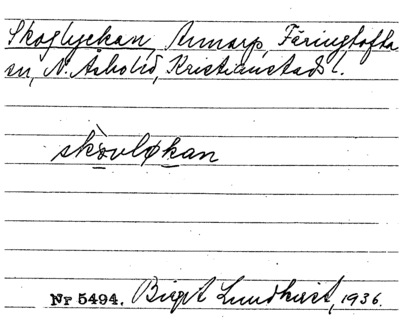 Skoglyckan, Annarp, Färingtofta
sn, N. Åsbo hd, Kristianstads l.
skòvløkan
Nr 5494. Birgit Lundkvist, 1936.